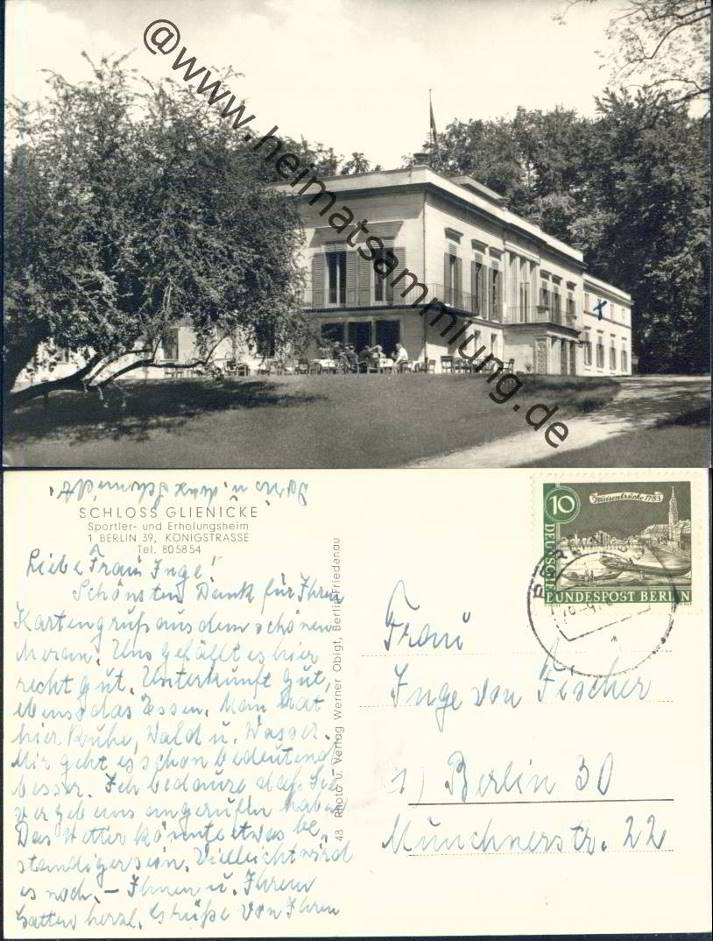 @www.heimatsammlung.de
SCHLOSS GLIENICKE
Sportler- und Erholungsheim
1 BERLIN 39, KÖNIGSTRASSE
Tel. 805854
Liebe Frau Inge!
Schönsten Dank für Ihren
Kartengruß aus dem schönen
Meran. Uns gefällt es hier
recht gut. Unterkunft gut,
ebenso das Essen. Man hat
hier Ruhe, Wald u. Wasser.
Mir geht es schon bedeutend
besser. Ich bedaure daß Sie
vergebens angerufen haben.
Das Wetter könnte etwas be-
ständiger sein. Vielleicht wird
es noch. – Ihnen u. Ihrem
Gatten herzl. Grüße von Ihren
u. Max
48 Photo u. Verlag Werner Obigt, Berlin-Friedenau
10
Waisenbrücke 1783
DEUTSCHE
BUNDESPOST BERLIN
Frau
Inge von Fischer
1) Berlin 30
Münchnerstr. 22